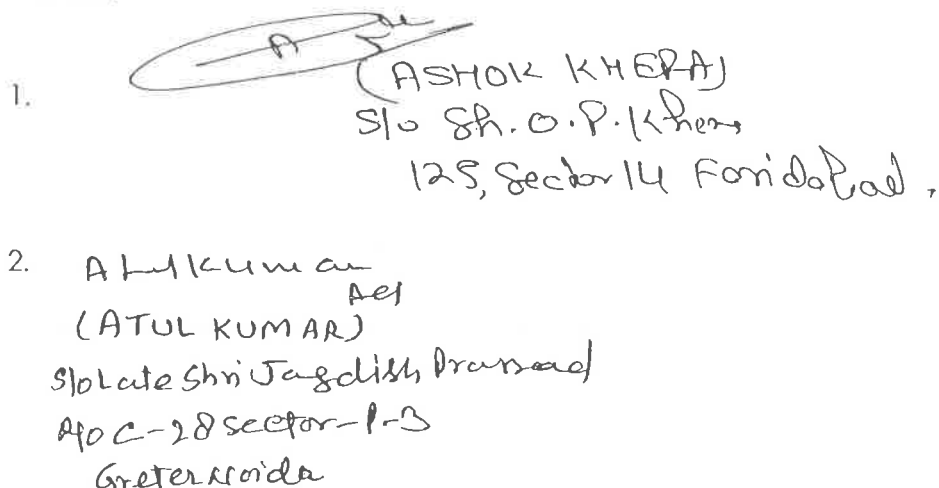 1.
(ASHOK KHERA)
S/o Sh. O.P. Khera
125, Sector 14 Faridabad,
2. Atul Kumar
(ATUL KUMAR)
S/o Late Shri Jagdish Prasaad
R/o C-28 sector-P-3
Greter Noida